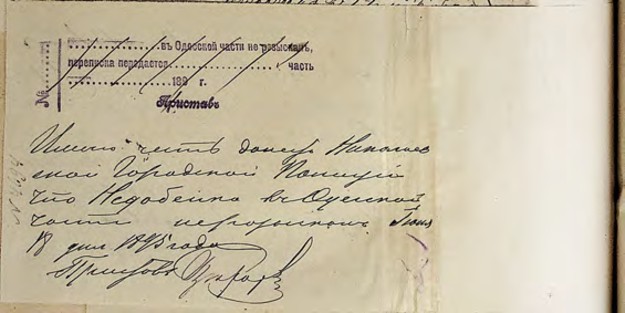 въ Одесской части не розысканъ,
переписка передается часть
№ 189 г.
Приставъ
Имею честь донести Николаев
ской Городской Полиции
что Недобейка въ Одесской
части нерозыскана Июня
18 дня 1895 года
Приставъ